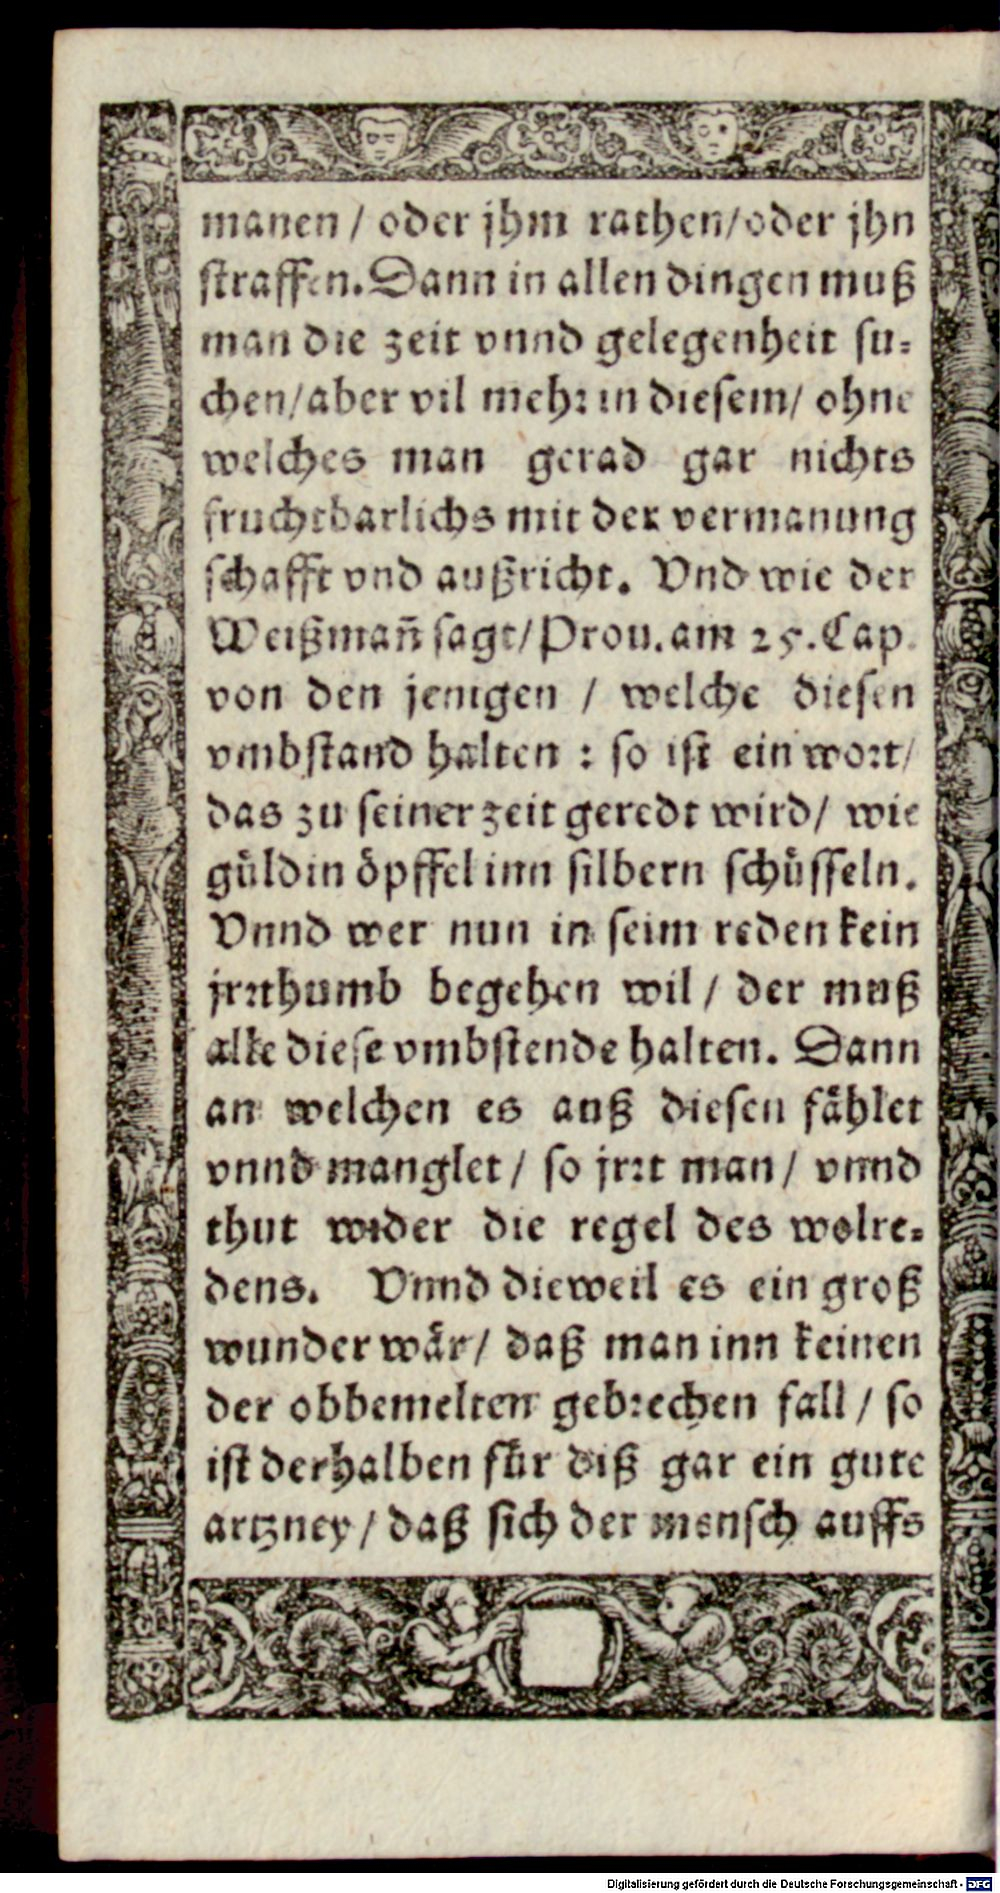 manen / oder jhm rathen/oder jhn
straffen. Dann in allen dingen muß
man die zeit vnnd gelegenheit su-
chen/aber vil mehr in diesem/ ohne
welches man gerad gar nichts
fruchtbarlichs mit der vermanung
schafft vnd außricht. Vnd wie der
Weißmañ sagt/Prou.am 25.Cap.
von den jenigen / welche diesen
vmbstand halten : so ist ein wort/
das zu seiner zeit geredt wird/ wie
guͤldin oͤpffel inn silbern schuͤsseln.
Vnnd wer nun in seim reden kein
jrrthumb begehen wil / der muß
alle diese vmbstende halten. Dann
an welchen es auß diesen faͤhlet
vnnd manglet / so jrrt man / vnnd
thut wider die regel des wolre-
dens. Vnnd dieweil es ein groß
wunder waͤr / daß man inn keinen
der obbemelten gebrechen fall / so
ist derhalben fuͤr diß gar ein gute
artzney / daß sich der mensch auffs
Digitalisierung gefördert durch die Deutsche Forschungsgemeinschaft - DFG